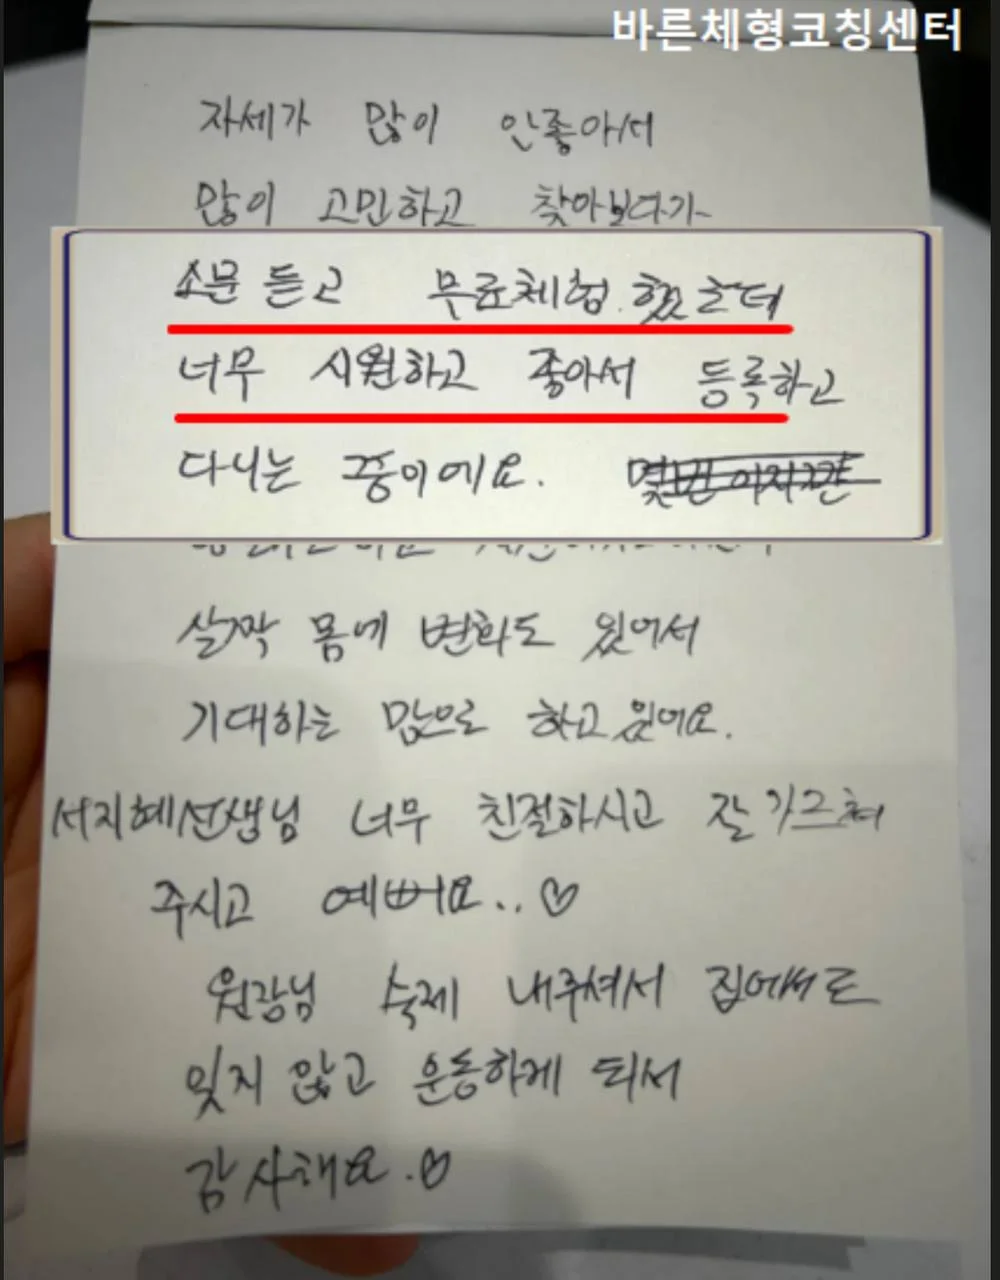 바른체형코칭센터
자세가 많이 안좋아서
많이 고민하고 찾아보다가
소문 듣고 무료체험 했는데
너무 시원하고 좋아서 등록하고
다니는 중이에요.
살짝 몸에 변화도 있어서
기대하는 맘으로 하고있어요.
서지혜선생님 너무 친절하시고 잘 가르쳐
주시고 예뻐요..♡
원장님 숙제 내주셔서 집에서도
잊지 않고 운동하게 되서
감사해요.♡